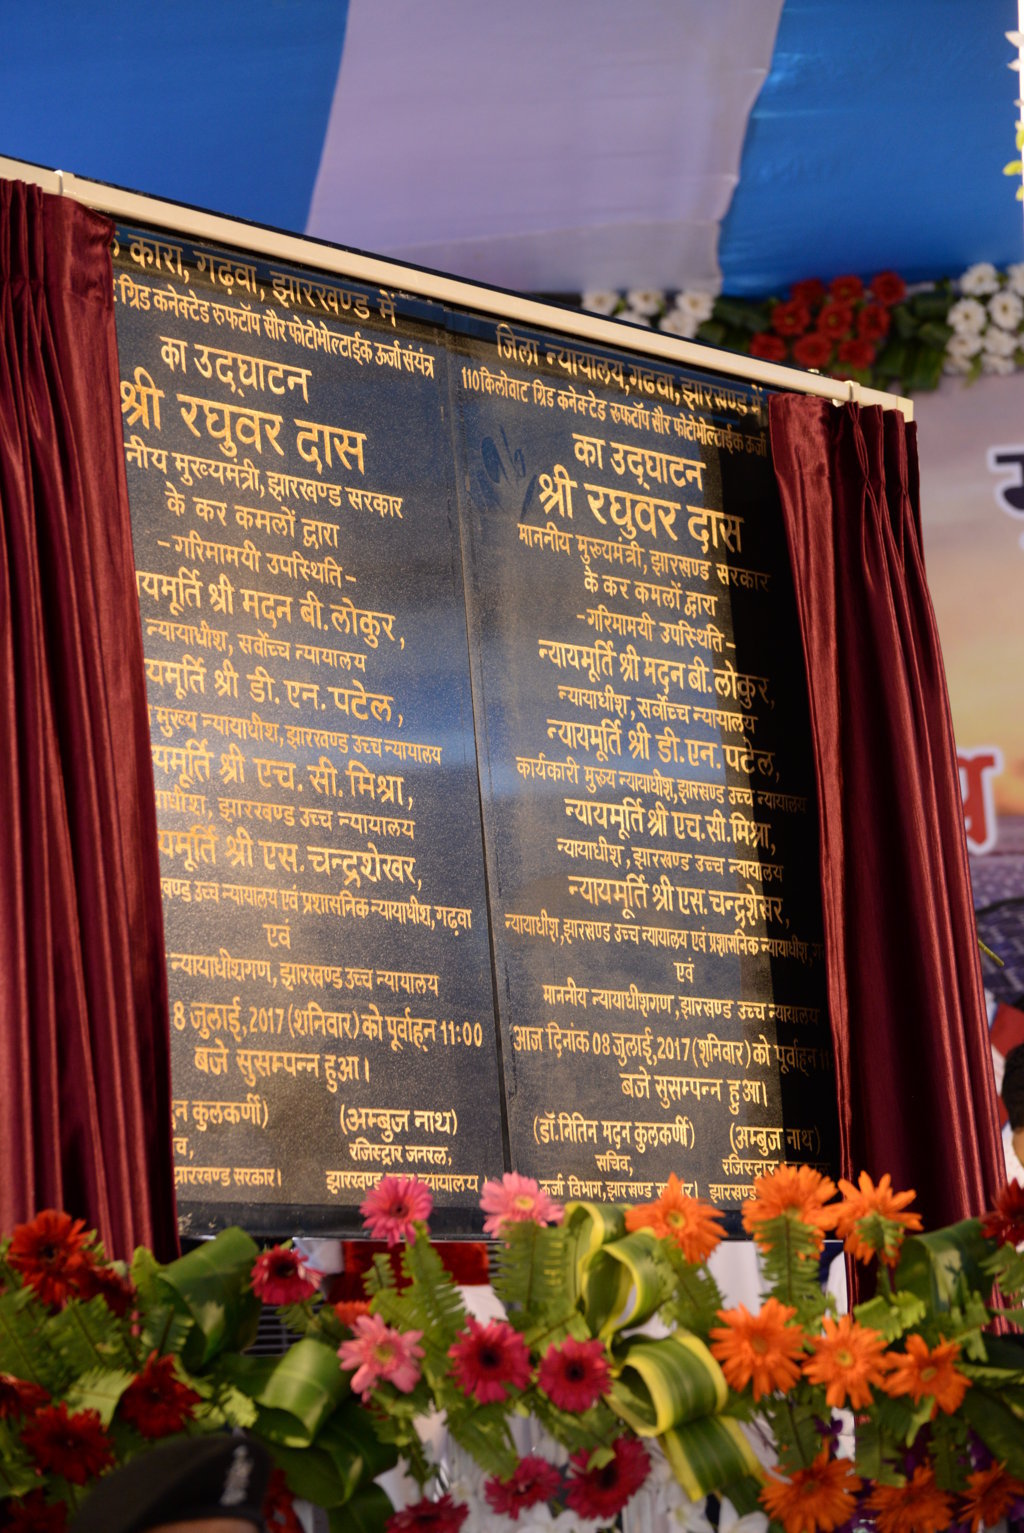 कारा, गढ़वा, झारखण्ड में
ग्रिड कनेक्टेड रुफटॉप सौर फोटोभोल्टाईक ऊर्जा संयंत्र
का उद्घाटन
श्री रघुवर दास
नीय मुख्यमंत्री, झारखण्ड सरकार
के कर कमलों द्वारा
-गरिमामयी उपस्थिति-
यमूर्ति श्री मदन बी. लोकुर,
न्यायाधीश, सर्वोच्च न्यायालय
यमूर्ति श्री डी. एन. पटेल,
मुख्य न्यायाधीश, झारखण्ड उच्च न्यायालय
यमूर्ति श्री एच. सी. मिश्रा,
याधीश, झारखण्ड उच्च न्यायालय
यमूर्ति श्री एस. चन्द्रशेखर,
खण्ड उच्च न्यायालय एवं प्रशासनिक न्यायाधीश, गढ़वा
एवं
न्यायाधीशगण, झारखण्ड उच्च न्यायालय
8 जुलाई, 2017 (शनिवार) को पूर्वाह्न 11:00
बजे सुसम्पन्न हुआ।
न कुलकर्णी)
(अम्बुज नाथ)
व,
रजिस्ट्रार जनरल,
झारखण्ड सरकार।
झारखण्ड उच्च न्यायालय।
जिला न्यायालय, गढवा, झारखण्ड में
110 किलोवाट ग्रिड कनेक्टेड रुफटॉप सौर फोटोभोल्टाइक ऊर्जा
का उद्घाटन
श्री रघुवर दास
माननीय मुख्यमंत्री, झारखण्ड सरकार
के कर कमलों द्वारा
-गरिमामयी उपस्थिति-
न्यायमूर्ति श्री मदन बी. लोकुर,
न्यायाधीश, सर्वोच्च न्यायालय
न्यायमूर्ति श्री डी. एन. पटेल,
कार्यकारी मुख्य न्यायाधीश, झारखण्ड उच्च न्यायालय
न्यायमूर्ति श्री एच. सी. मिश्रा,
न्यायाधीश, झारखण्ड उच्च न्यायालय
न्यायमूर्ति श्री एस. चन्द्रशेखर,
न्यायाधीश, झारखण्ड उच्च न्यायालय एवं प्रशासनिक न्यायाधीश,
एवं
माननीय न्यायाधीशगण, झारखण्ड उच्च न्यायालय
आज दिनांक 08 जुलाई, 2017 (शनिवार) को पूर्वाह्न 11
बजे सुसम्पन्न हुआ।
(डॉ. नितिन मदन कुलकर्णी)
(अम्बुज नाथ)
सचिव,
रजिस्ट्रार
ऊर्जा विभाग, झारखण्ड सरकार।
झारखण्ड